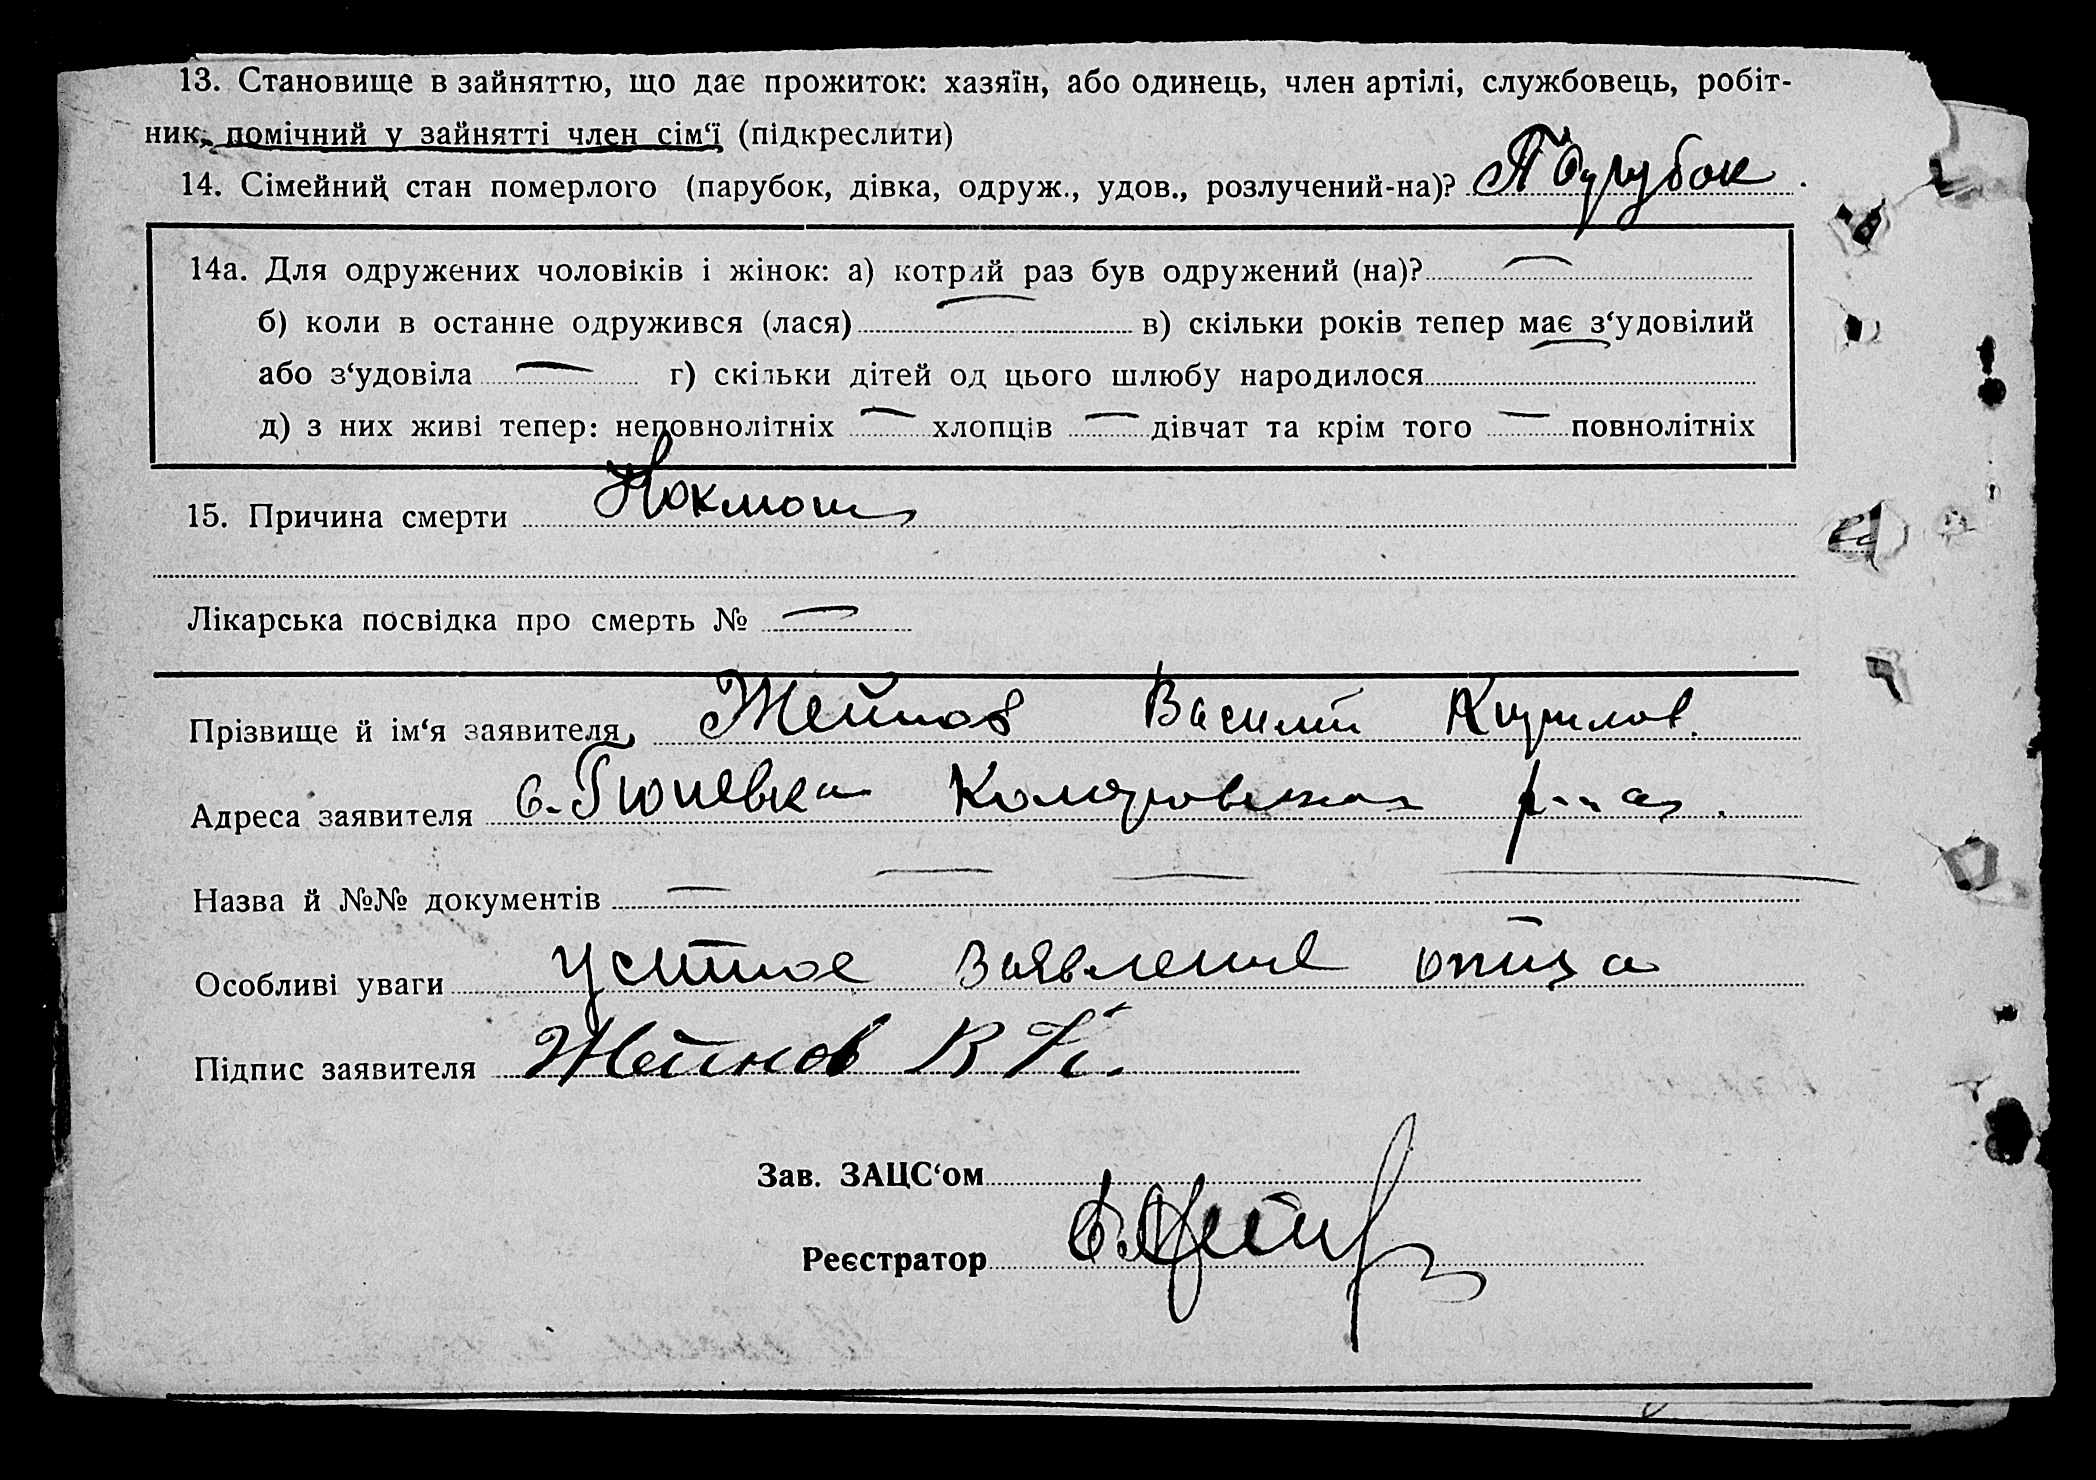 13. Становище в зайняттю, що дає прожиток: хазяїн, або одинець, член артілі, службовець, робіт-
ник, помічний у зайнятті член сім‘ї (підкреслити)
14. Сімейний стан померлого (парубок, дівка, одруж., удов., розлучений-на)? Парубок
14а. Для одружених чоловіків і жінок: а) котрий раз був одружений (на)? —
б) коли в останне одружився (лася) — в) скільки років тепер має з‘удовілий
або з‘удовіла — г) скільки дітей од цього шлюбу народилося —
д) з них живі тепер: неповнолітніх — хлопців — дівчат та крім того — повнолітніх
15. Причина смерти Коклюш
Лікарська посвідка про смерть № —
Прізвище й ім‘я заявителя Жейнов Василий Кирилов.
Адреса заявителя с. Гюневка Коларовского р-на.
Назва й №№ документів — — — —
Особливі уваги Устное заявление отца
Підпис заявителя Жейнов В К.
Зав. ЗАЦС‘ом
Реєстратор